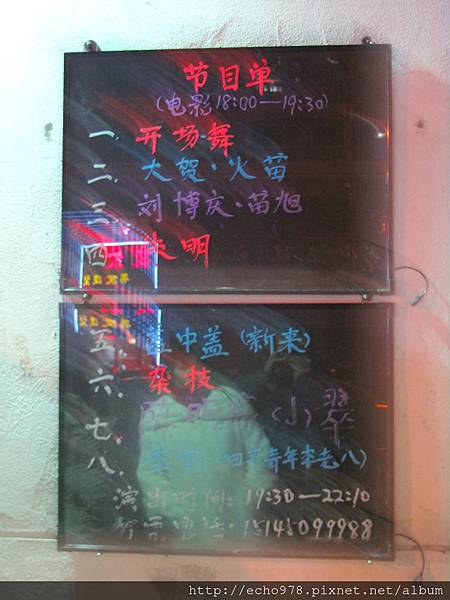 节目单
(电影18:00—19:30)
一. 开场舞
二. 大贺·火苗
三. 刘博庆·苗旭
四. 明
五. 盖中盖(新来)
六. 杂技
七. (小翠
八. (四平青年李老八)
演出时间: 19:30—22:10
电话: 15145099988
http://echo978.pixnet.net/album